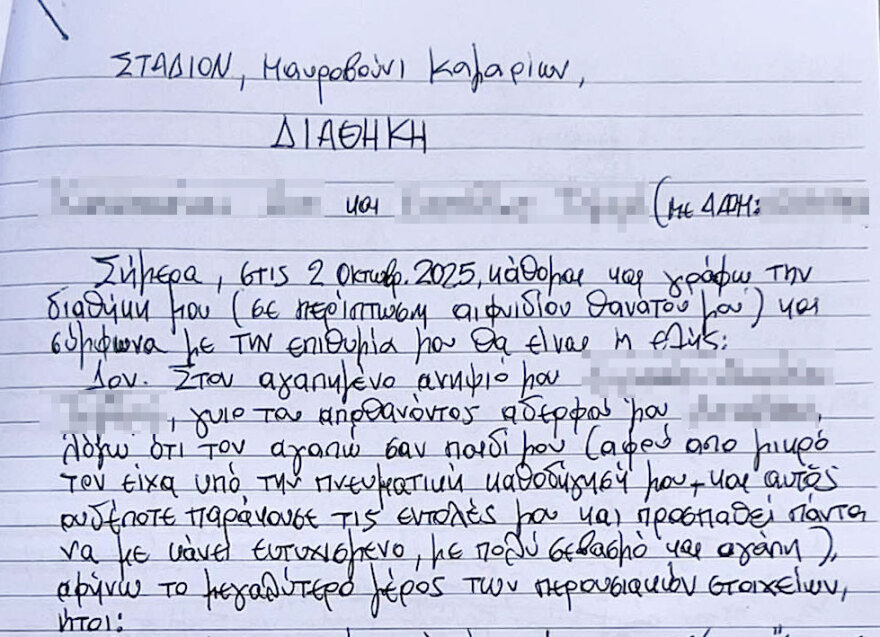 ΣΤΑΔΙΟΝ, Μαυροβούνι Καλαρίων,
ΔΙΑΘΗΚΗ
και (με ΑΦΜ:
Σήμερα, στις 2 Οκτωβρ. 2025, κάθομαι και γράφω την
διαθήκη μου (σε περίπτωση αιφνιδίου θανάτου μου) και
σύμφωνα με την επιθυμία μου θα είναι η εξής:
1ον. Στον αγαπημένο ανηψιό μου
, γυιο του αποθανόντος αδερφού μου ,
λόγω ότι τον αγαπώ σαν παιδί μου (αφού απο μικρό
τον είχα υπό την πνευματική καθοδήγησή μου, και αυτός
ουδέποτε παράκουσε τις εντολές μου και προσπαθεί πάντα
να με κάνει ευτυχισμένο, με πολύ σεβασμό και αγάπη),
αφήνω το μεγαλύτερο μέρος των περουσιακών στοιχείων,
ήτοι: